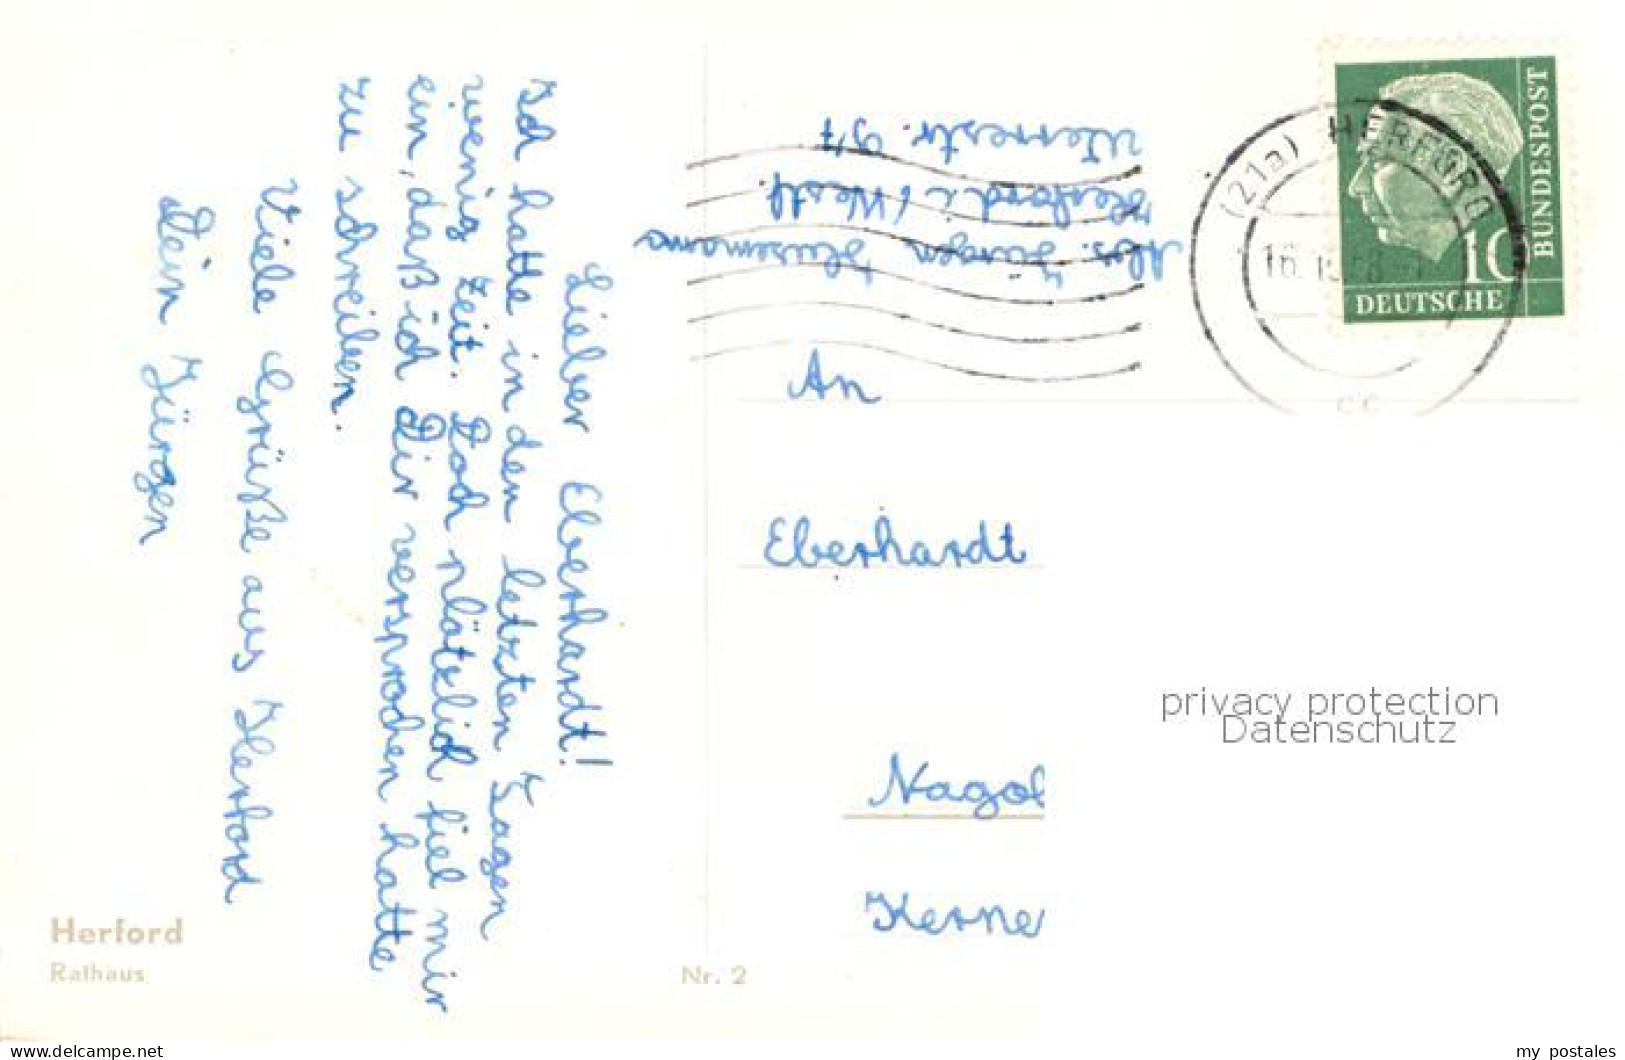 Lieber Eberhardt!
Ich hatte in den letzten Tagen
wenig Zeit. Doch plötzlich fiel mir
ein, daß ich Dir versprochen hatte
zu schreiben.
Viele Grüße aus Herford
Dein Jürgen
Herford
Rathaus
Nr. 2
Abs. Jürgen
Herford i. Westf
Werrestr. 97
(21a) HERFORD
16.
cc
10
DEUTSCHE
BUNDESPOST
An
Eberhardt
Nagol
Kerne
privacy protection
Datenschutz
delcampe.net
my_postales